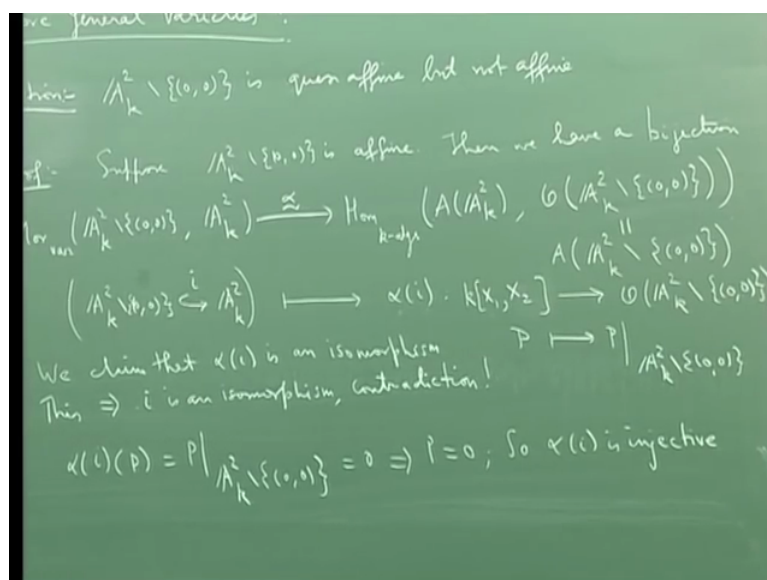 ve general varieties.
tion:- 𝔸²_k \ {(0,0)} is quasi affine but not affine
of:- Suppose 𝔸²_k \ {(0,0)} is affine. Then we have a bijection
Mor_var (𝔸²_k \ {(0,0)}, 𝔸²_k) —α≈→ Hom_{k-algs} (A(𝔸²_k), O(𝔸²_k \ {(0,0)}))
||
A(𝔸²_k \ {(0,0)})
(𝔸²_k \ {(0,0)} ↪^i 𝔸²_k) ⟼ α(i) : k[X₁,X₂] → O(𝔸²_k \ {(0,0)})
P ⟼ P|_{𝔸²_k \ {(0,0)}}
We claim that α(i) is an isomorphism
This ⇒ i is an isomorphism, contradiction!
α(i)(P) = P|_{𝔸²_k \ {(0,0)}} = 0 ⇒ P=0; So α(i) is injective